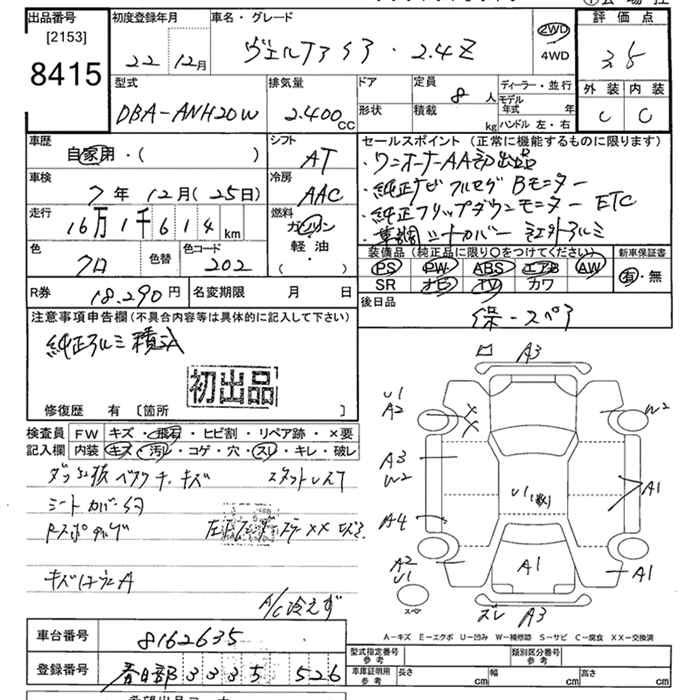 出品番号
[2153]
8415
初度登録年月
22 12月
車名・グレード
ヴェルファイア・2.4Z
2WD
4WD
評価点
3.5
外装 内装
C C
型式
DBA-ANH20W
排気量
2.400cc
ドア
形状
定員
8人
積載
kg
ディーラー・並行
モデル年式 年
ハンドル 左・右
車歴
自家用・( )
シフト
AT
車検
7年12月(25日)
冷房
AAC
走行
16万1千614km
燃料
ガソリン
軽油・
( )
色
クロ
色替
色コード
202
セールスポイント(正常に機能するものに限ります)
・ワンオーナーAA初出品
・純正ナビフルセグBモニター
・純正フリップダウンモニター ETC
・革調シートカバー 社外アルミ
装備品(純正品に限り○をつけてください)
PS PW ABS エアB AW
SR ナビ TV カワ
新車保証書
有・無
R券
18.290円
名変期限 月 日
後日品
保-スペア
注意事項申告欄(不具合内容等は具体的に記入して下さい)
純正アルミ積込
初出品
修復歴 有 [箇所 ]
検査員
記入欄
FW キズ・飛石・ヒビ割・リペア跡・×要
内装 キズ・汚レ・コゲ・穴・スレ・キレ・破レ
シートカバー
A/C冷えず
A3
U1
A2
W2
A3
W2
A4
A1
U1
A1
A2
U1
A1
スペア
ズレ A3
A-キズ E-エクボ U-凹み W-補修跡 S-サビ C-腐食 XX-交換済
車台番号
8162635
登録番号
春日部 333 526
型式指定番号
参考
類別区分番号
参考
車庫証明用
参考
長さ cm
幅 cm
高さ cm